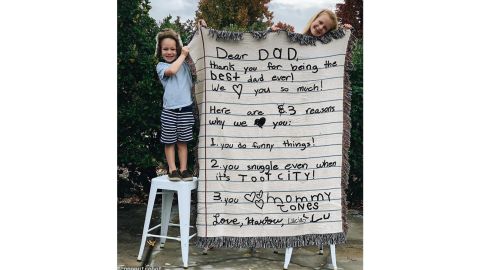 Dear DAD,
thank you for being the
best dad ever!
We you so much!
Here are 3 reasons
why we you:
1. you do funny things!
2. you snuggle even when
it's TOOT CITY!
3. you mommy
TONES
Love, Harlow, Lu